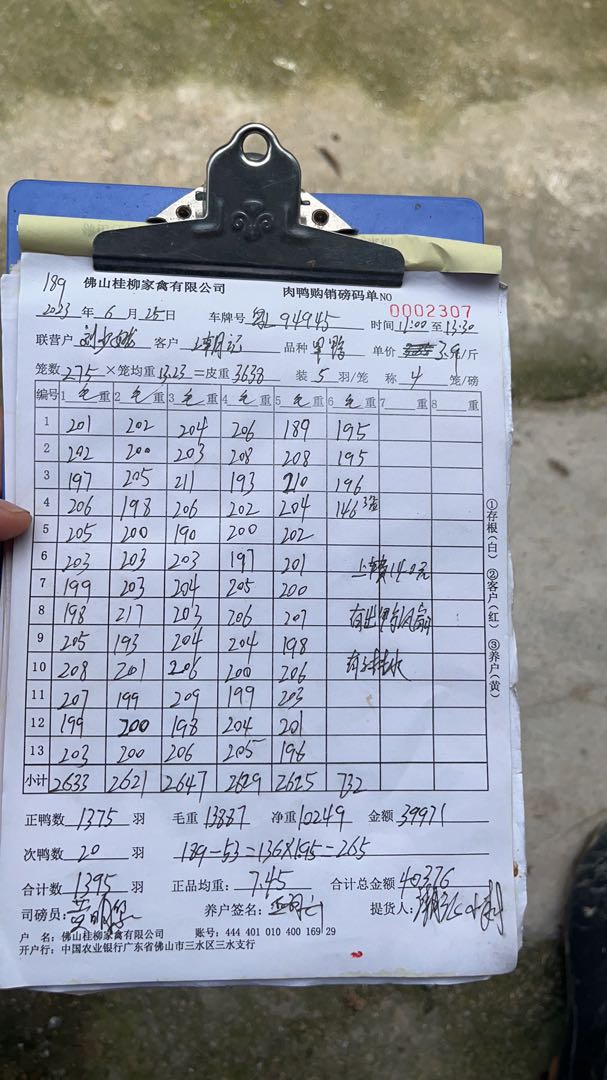 189 佛山桂柳家禽有限公司 肉鸭购销磅码单 NO 0002307
2023 年 6 月 25 日 车牌号 94945 时间 11:00 至 13:30
联营户 客户 品种 单价 3.9/斤
笼数 275 ×笼均重 13.23 =皮重 3638 装 5 羽/笼 称 4 笼/磅
编号 1 毛 重 2 毛 重 3 毛 重 4 毛 重 5 毛 重 6 毛 重 7 重 8 重
1 201 202 204 206 189 195
2 202 200 203 208 208 195
3 197 205 211 193 210 196
4 206 198 206 202 204 146 3笼
5 205 200 190 200 202
6 203 203 203 197 201
7 199 203 204 205 200
8 198 217 203 206 207
9 205 193 204 204 198
10 208 201 206 200 206
11 207 199 209 199 203
12 199 200 198 204 201
13 203 200 206 205 196
小计 2633 2621 2647 2629 2625 732
①存根(白) ②客户(红) ③养户(黄)
正鸭数 1375 羽 毛重 13887 净重 10249 金额 39971
次鸭数 20 羽 189-53=136×1.95=265
合计数 1395 羽 正品均重: 7.45 合计总金额 40376
司磅员: 养户签名: 提货人:
户 名: 佛山桂柳家禽有限公司 账号: 444 401 010 400 169 29
开户行: 中国农业银行广东省佛山市三水区三水支行